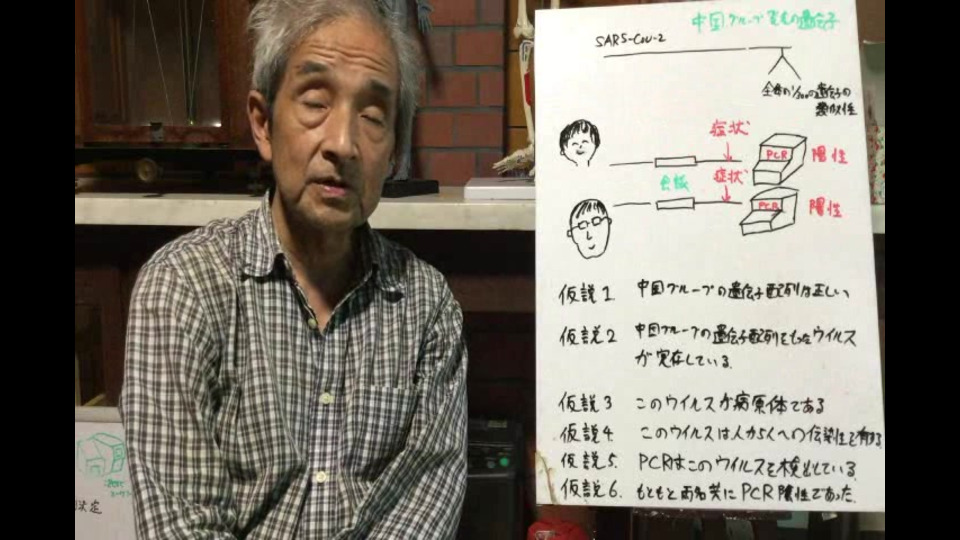 中国グループ発の遺伝子
SARS-CoV-2
全体の1/300の遺伝子の
類似性
症状
PCR
陽性
会話
症状
PCR
陽性
仮説1. 中国グループの遺伝子配列は正しい
仮説2 中国グループの遺伝子配列をもったウイルス
が実在している.
仮説3 このウイルスが病原体である
仮説4. このウイルスは人から人への伝染性を有する
仮説5. PCRはこのウイルスを検出している
仮説6. もともと両名共にPCR陽性であった.
決定